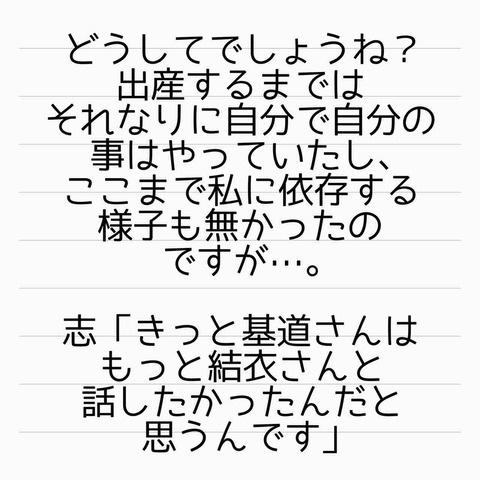 どうしてでしょうね？
出産するまでは
それなりに自分で自分の
事はやっていたし、
ここまで私に依存する
様子も無かったの
ですが…。
志「きっと基道さんは
もっと結衣さんと
話したかったんだと
思うんです」